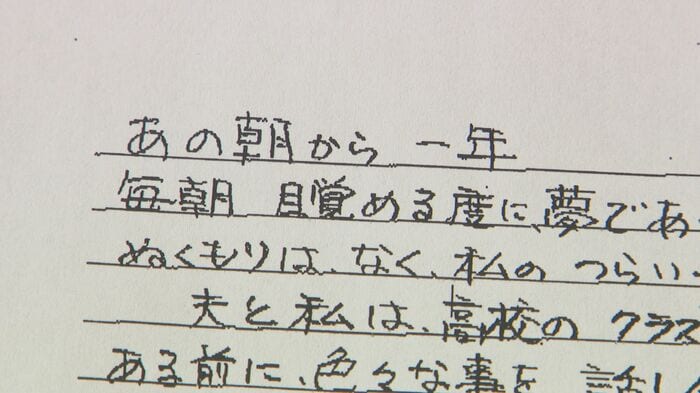 あの朝から 一年
毎朝 目覚める度に、夢であ
ぬくもりは、なく、私の つらい
夫と私は、高校の クラス
ある前に、色々な事を 話し